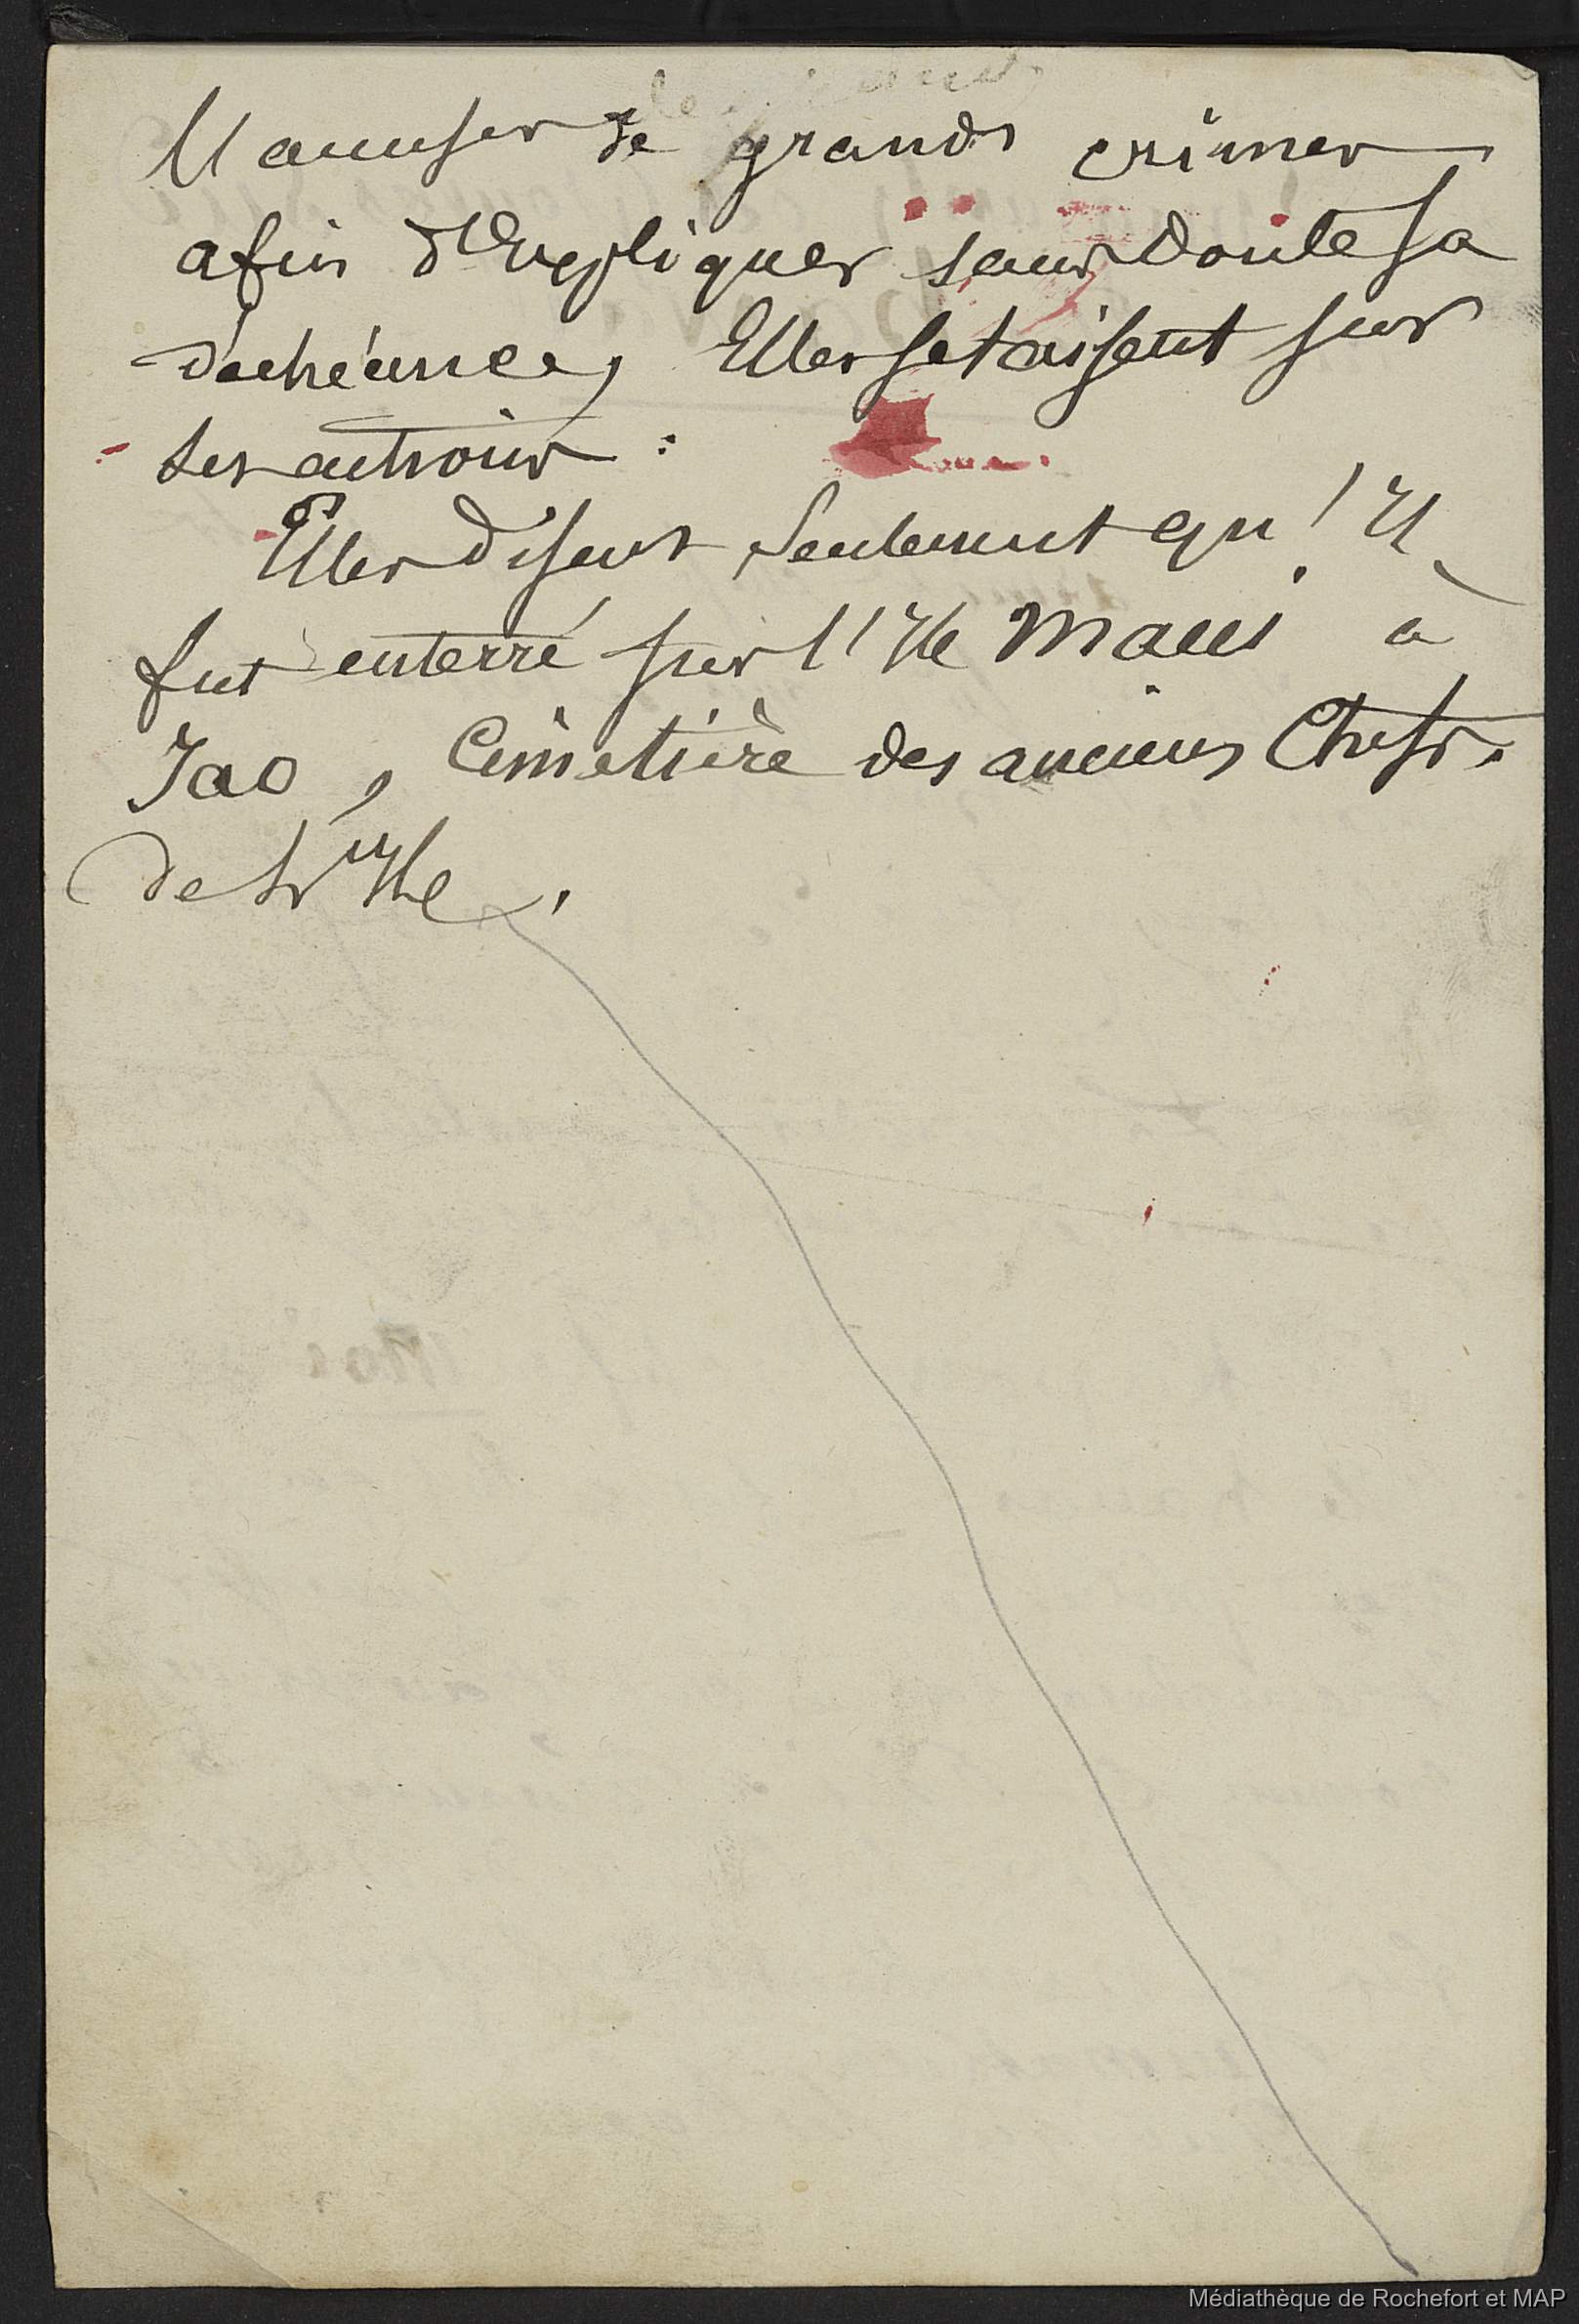 l'accuser de grands crimes
afin d'Expliquer sans doute sa
déchéance, Elles se taisent sur
ses actions :
Elles disent seulement qu'Il
fut enterré sur l'Ile Maui à
Iao, Cimetière des anciens Chefs.
de l'Ile.
Médiathèque de Rochefort et MAP